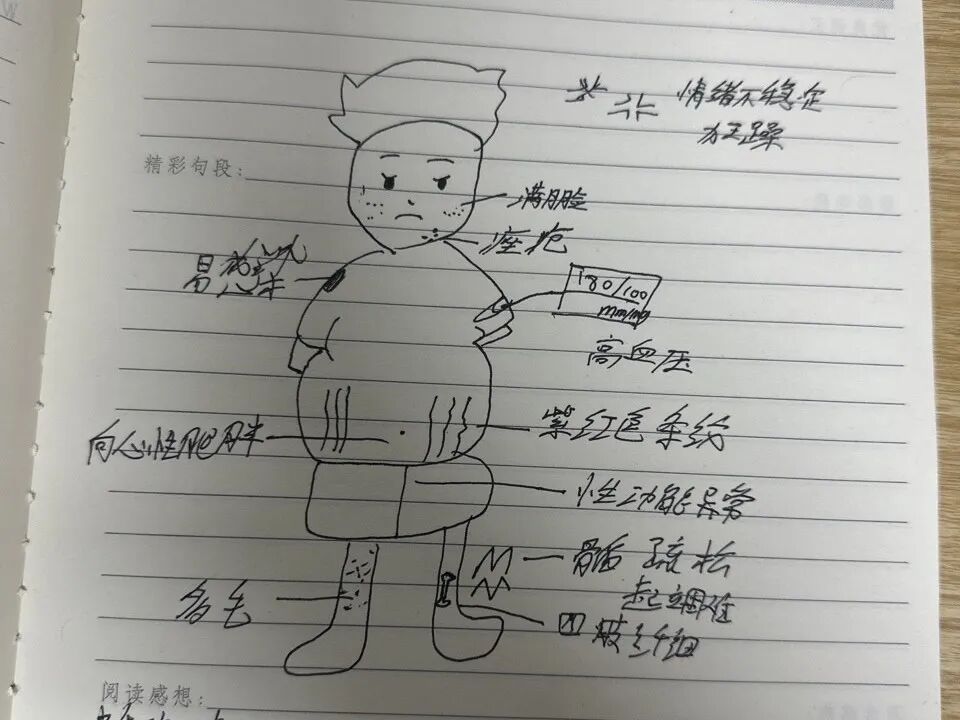 情绪不稳定
狂躁
精彩句段:
满月脸
痤疮
易感染
180/100
mmHg
高血压
紫红色条纹
向心性肥胖
性功能异常
骨质疏松
起立困难
多毛
四肢纤细
阅读感想: